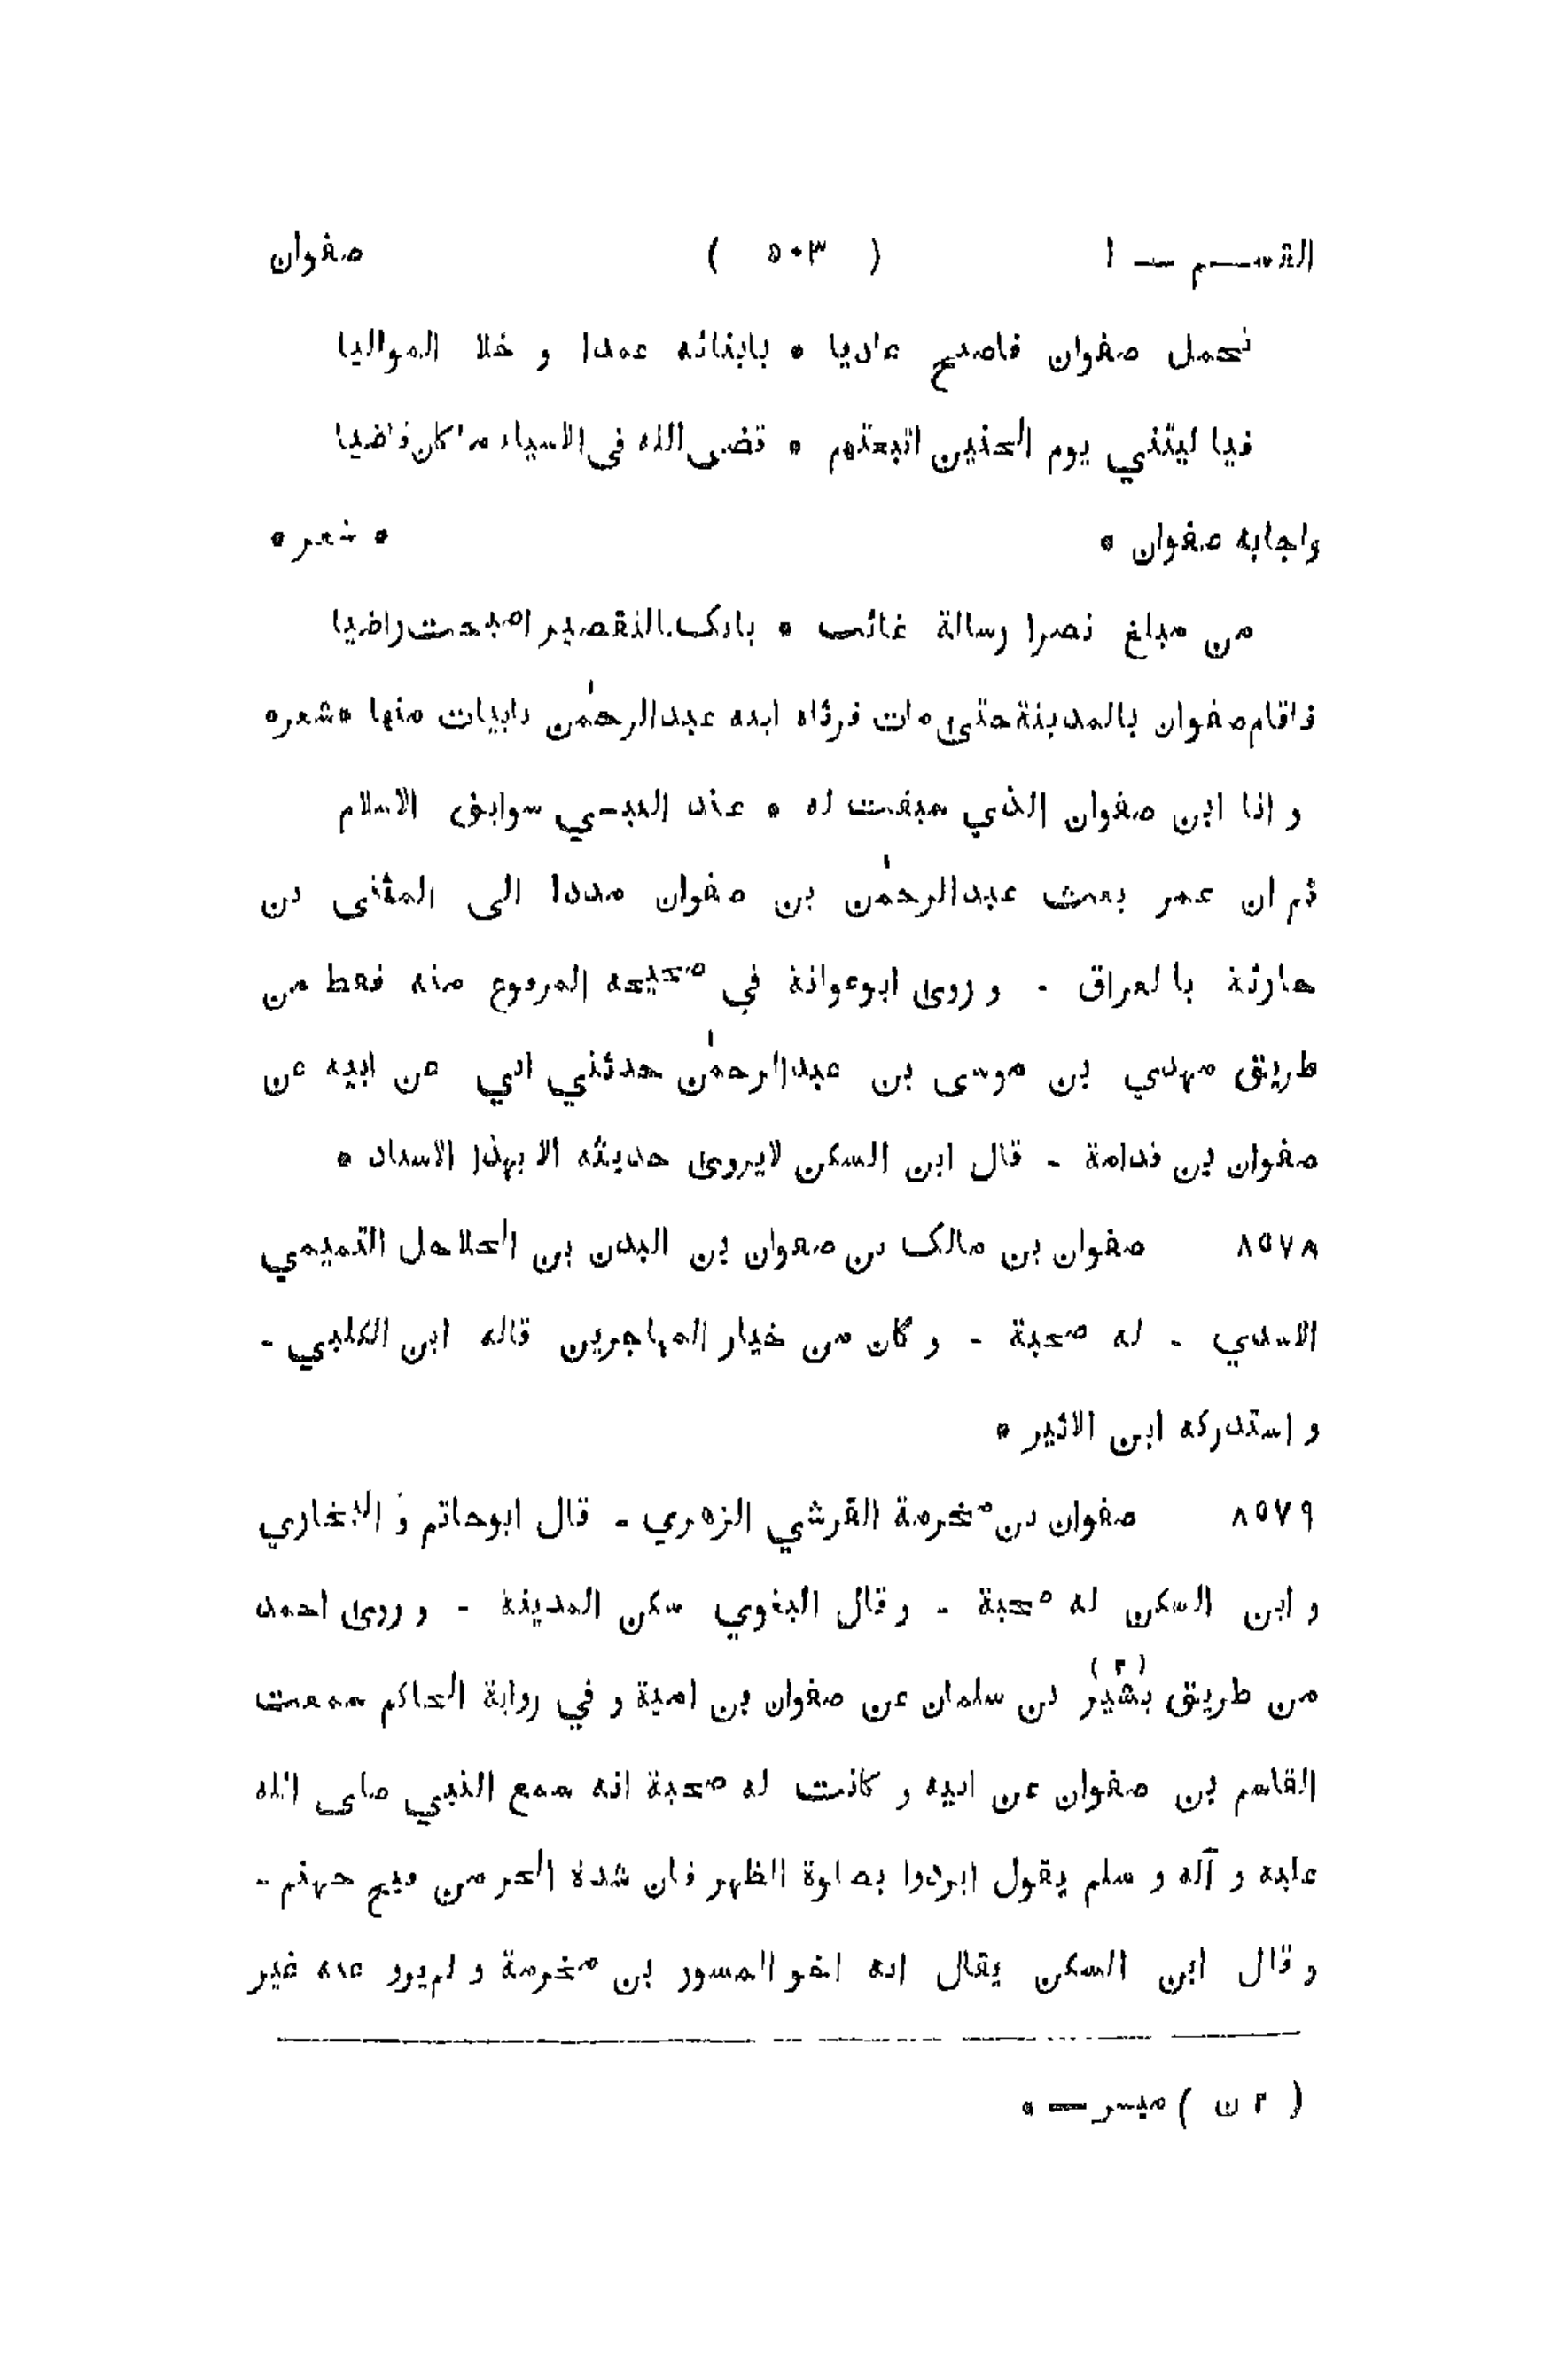 القســم — ١ ( ٥٠٣ ) صفوان
تحمل صفوان فاصبح غاديا * بابنائه عمدا و خلا المواليا
فيا ليتني يوم الحنين اتبعتهم * قضى الله فى الاشياء ما كان قاضيا
واجابه صفوان * * شعر *
من مبلغ نصرا رسالة غائب * بانك بالتقصير اصبحت راضيا
فاقام صفوان بالمدينة حتى مات فرثاه ابنه عبدالرحمٰن بابيات منها * شعر *
و انا ابن صفوان الذي سبقت له * عند النبي سوابق الاسلام
ثم ان عمر بعث عبدالرحمٰن بن صفوان مددا الى المثنى بن
حارثة بالعراق - و روى ابوعوانة في صحيحه المرفوع منه فقط من
طريق مهدي بن موسى بن عبدالرحمٰن حدثني ابي عن ابيه عن
صفوان بن قدامة - قال ابن السكن لايروى حديثه الا بهذا الاسناد *
٨٥٧٨ صفوان بن مالك بن صفوان بن البدن بن الحلاحل التميمي
الاسدي - له صحبة - و كان من خيار المهاجرين قاله ابن الكلبي -
و استدركه ابن الاثير *
٨٥٧٩ صفوان بن مخرمة القرشي الزهري - قال ابوحاتم و البخاري
و ابن السكن له صحبة - و قال البغوي سكن المدينة - و روى احمد
من طريق بشير (٢) بن سلمان عن صفوان بن امية و في رواية الحاكم سمعت
القاسم بن صفوان عن ابيه و كانت له صحبة انه سمع النبي صلى الله
عليه و آله و سلم يقول ابردوا بصلوة الظهر فان شدة الحر من فيح جهنم -
و قال ابن السكن يقال انه اخو المسور بن مخرمة و لم يرو عنه غير
( ٢ ن ) ميسر — *